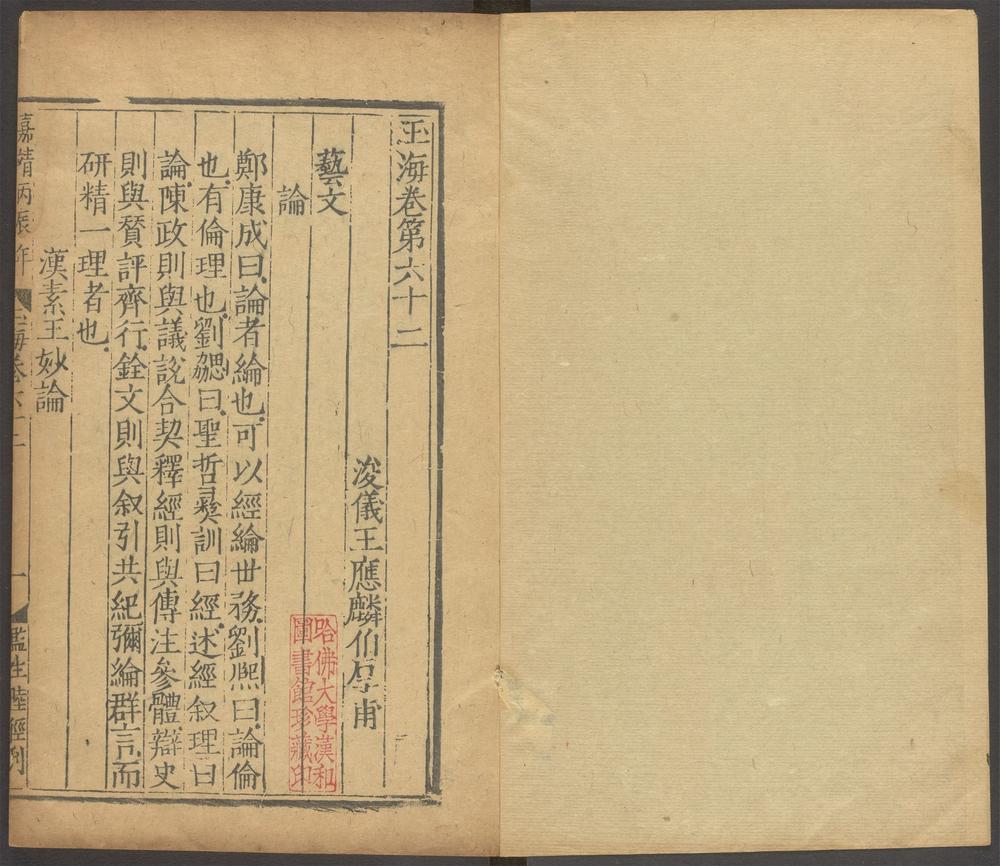 玉海卷第六十二
浚儀王應麟伯厚甫
藝文
論
鄭康成曰論者綸也可以經綸世務劉熙曰論倫
也有倫理也劉勰曰聖哲彞訓曰經述經叙理曰
論陳政則與議說合契釋經則與傳注參體辯史
則與賛評齊行銓文則與叙引共紀彌綸群言而
研精一理者也
漢素王妙論
嘉靖丙辰年
玉海卷六十二
一
監生陸經刋
哈佛大學漢和
圖書館珍藏印